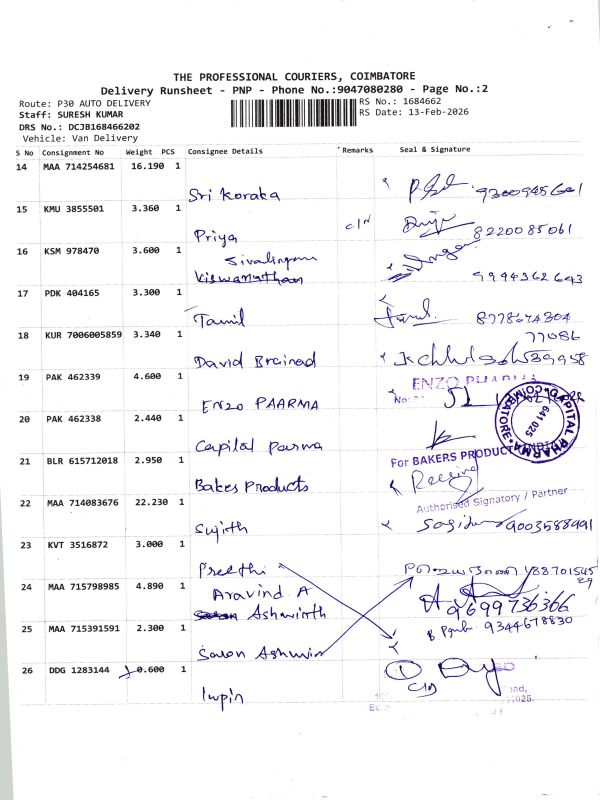 THE PROFESSIONAL COURIERS, COIMBATORE
Delivery Runsheet - PNP - Phone No.:9047080280 - Page No.:2
Route: P30 AUTO DELIVERY
Staff: SURESH KUMAR
DRS No.: DCJB168466202
Vehicle: Van Delivery
RS No.: 1684662
RS Date: 13-Feb-2026
S No Consignment No Weight PCS Consignee Details Remarks Seal & Signature
14 MAA 714254681 16.190 1
Sri Koraka
15 KMU 3855501 3.360 1
Priya 8220085061
16 KSM 978470 3.600 1
Sivalingam
Viswanathan 9994362643
17 PDK 404165 3.300 1
Tamil 8778674304
18 KUR 7006005859 3.340 1
77086
David 39958
19 PAK 462339 4.600 1
ENZO PHARMA
ENZO PAARMA
20 PAK 462338 2.440 1
CAPITAL PHARMA COIMBATORE 641 025
Capital Parma
21 BLR 615712018 2.950 1
For BAKERS PRODUCTS INDIA
Bakes Products
Received
Authorised Signatory / Partner
22 MAA 714083676 22.230 1
Sujith 9003588991
23 KVT 3516872 3.000 1
Preethi
24 MAA 715798985 4.890 1
Aravind A
Ashwinth 9699736366
25 MAA 715391591 2.300 1
9344678830
Saron Ashwin
26 DDG 1283144 0.600 1
lupin